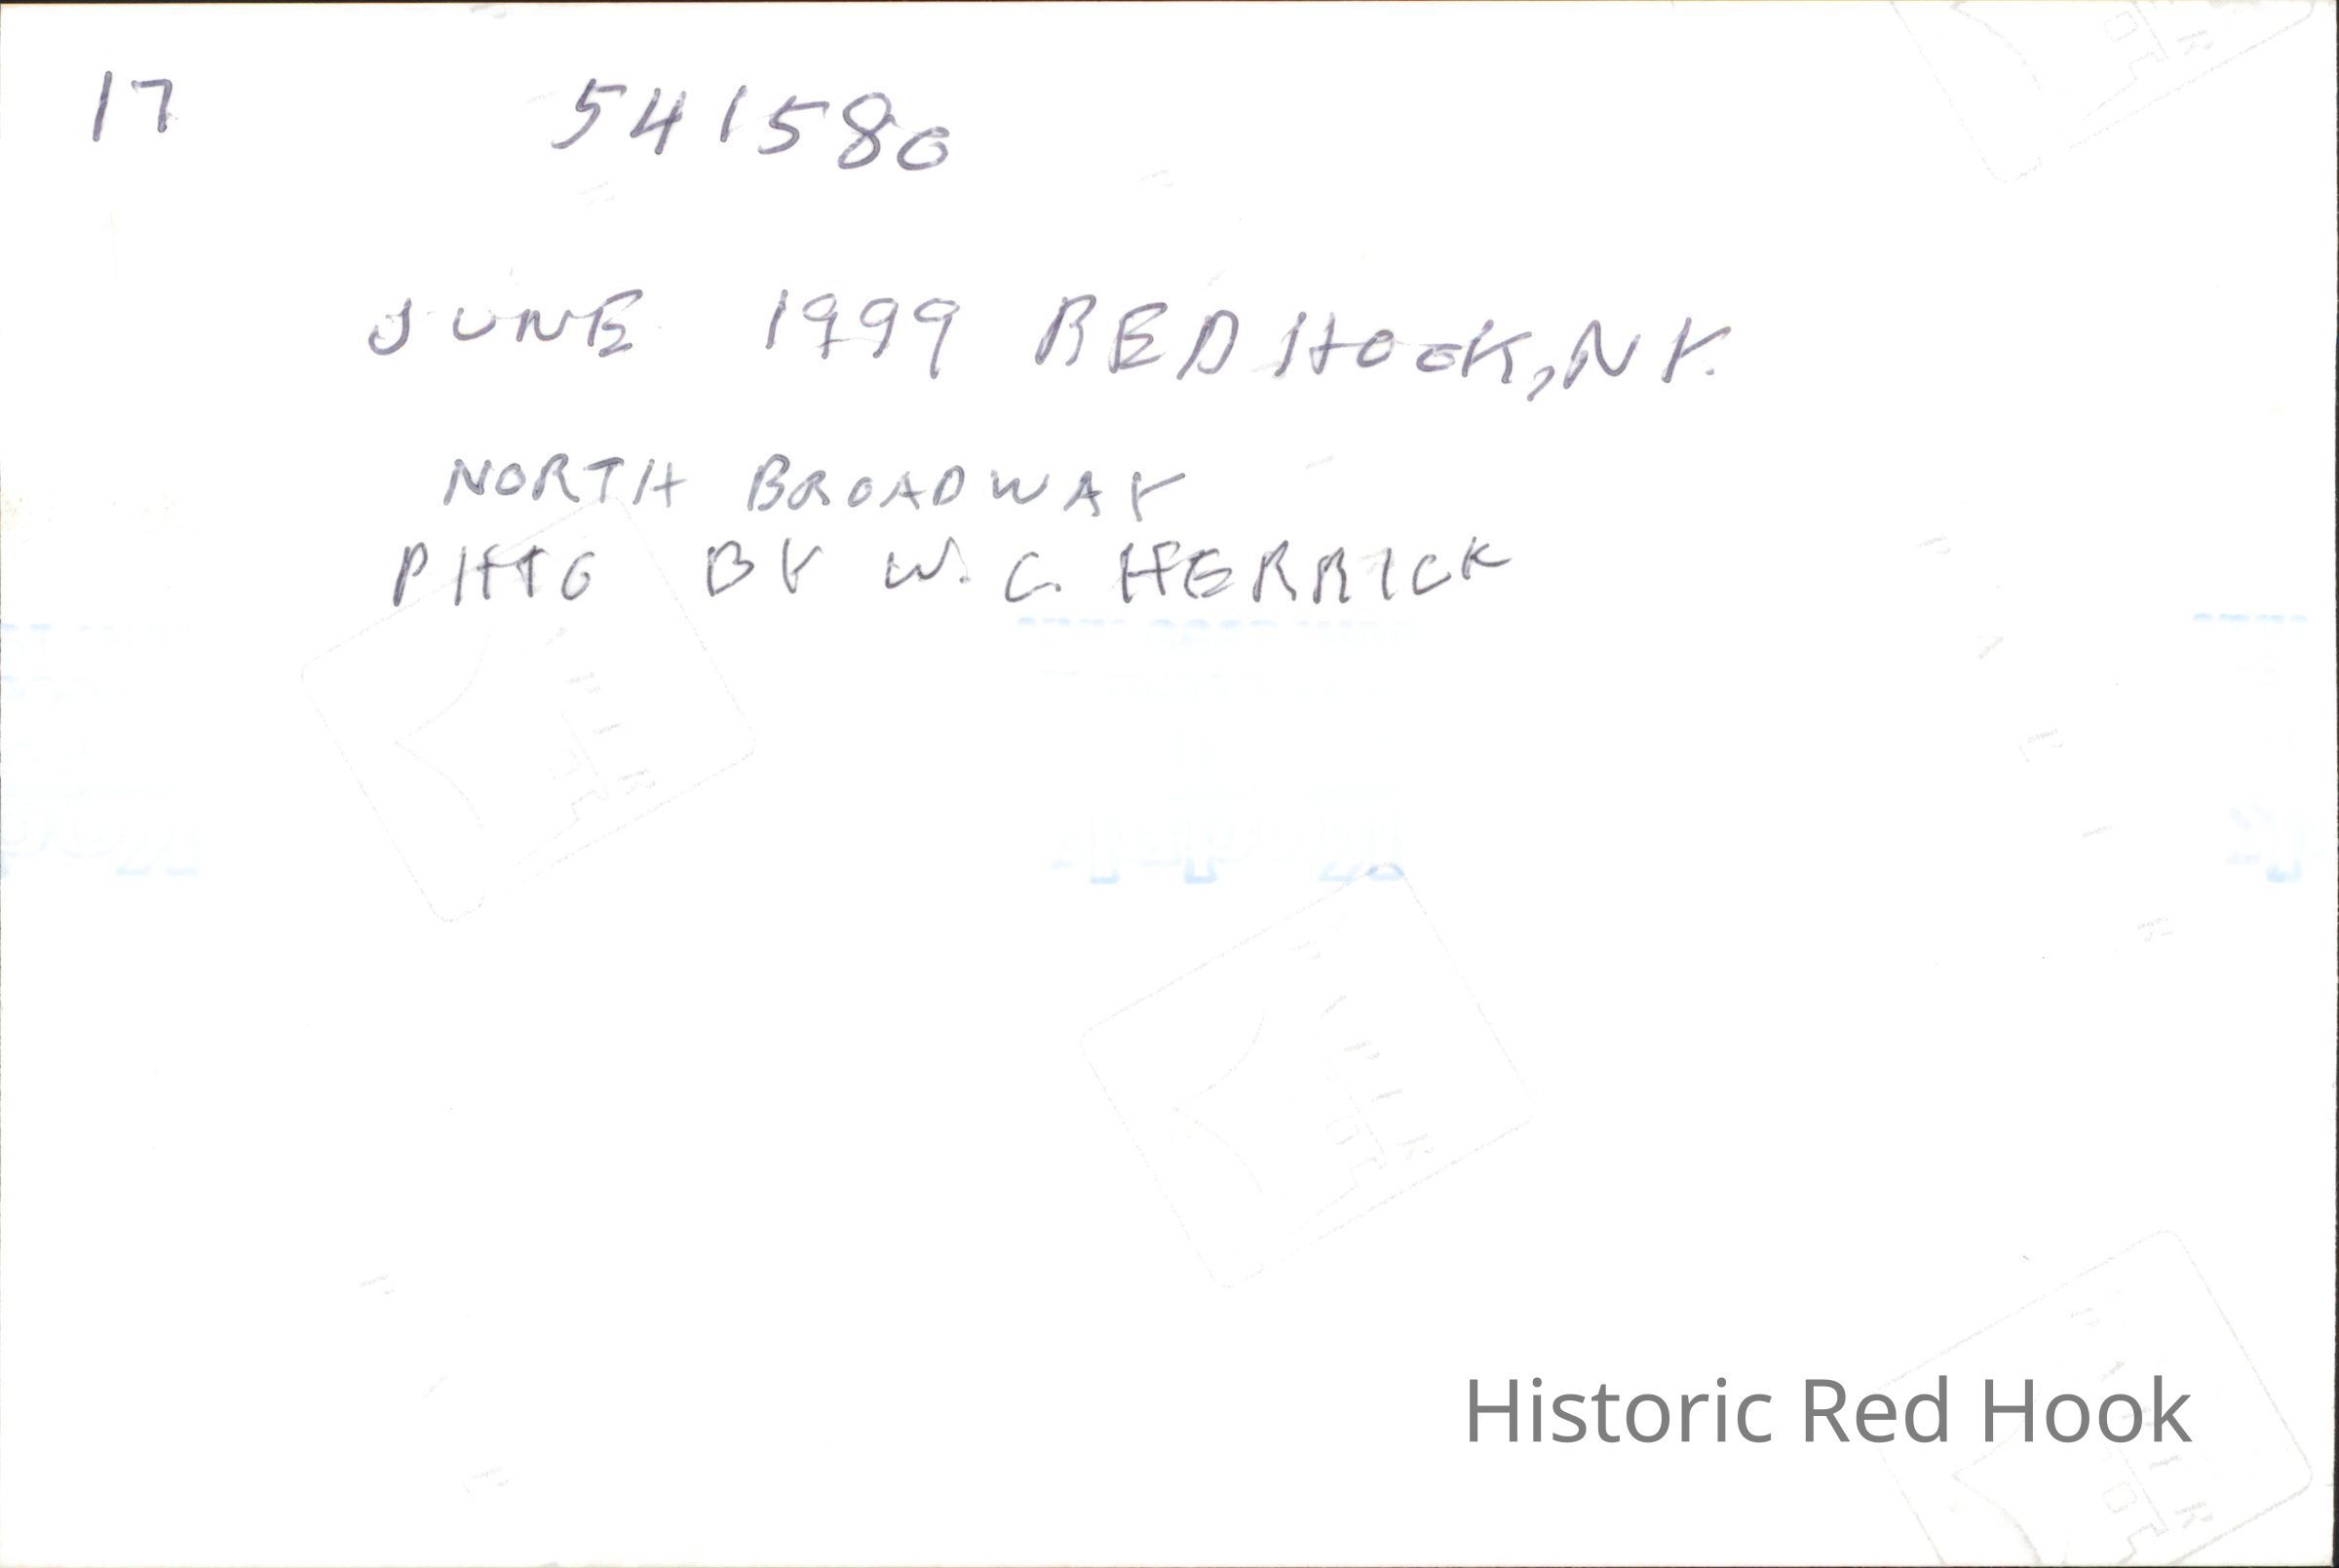 17 541580
JUNE 1999 RED HOOK, NY.
NORTH BROADWAY
PHTO BY W. C. HERRICK
Kodak
Historic Red Hook